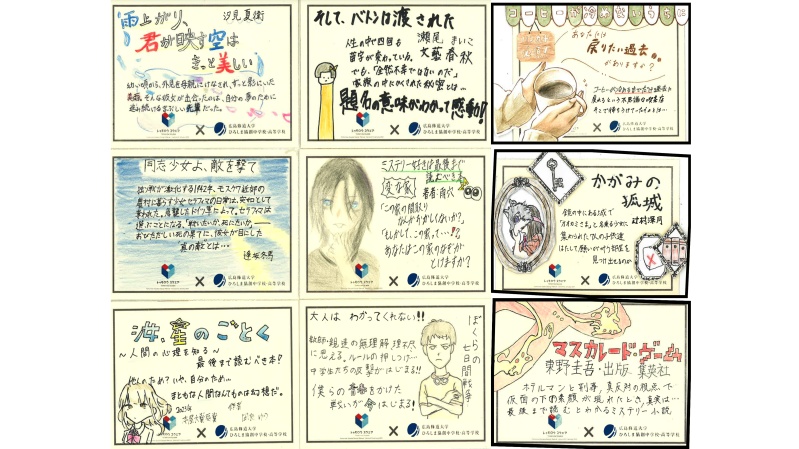 雨上がり、
汐見夏衛
君が映す空は
きっと美しい
幼い頃から、外見を母親にけなされ、ずっと影にいた
美雨。そんな彼女が出会ったのは、自分の夢のために
進み続けるまぶしい先輩だった。
広島修道大学
ひろしま協創中学校・高等学校
そして、バトンは渡された
瀬尾 まいこ
文藝春秋
人生の中で四回も
苗字が変わっている。
でも、「全然不幸ではないのだ」
家族の中にかくされた秘密とは…
題名の意味がわかって感動!
広島修道大学
ひろしま協創中学校・高等学校
コーヒーが冷めないうちに
あなたには
戻りたい過去
がありますか?
広島修道大学
ひろしま協創中学校・高等学校
同志少女よ、敵を撃て
独ソ戦が激化する1942年、モスクワ近郊の
農村に暮らす少女セラフィマの日常は、突如として
奪われた。
「戦いたいか、死にたいか」
おびただしい死の果てに、彼女が目にした
"真の敵"とは…
逢坂冬馬
広島修道大学
ひろしま協創中学校・高等学校
ミステリー好きは最後まで
読むべき本
変な家
著者:雨穴
「この家の間取り
なんかおかしくないか?
「もしかして、この家って…!?
あなたはこの家のなぞが
とけますか?
広島修道大学
ひろしま協創中学校・高等学校
かがみの
孤城
辻村深月
鏡の中にある城で
「オオカミさま」と名乗る少女に
集められた7人の子供達
はたして願いが叶う部屋を
見つけ出せるのか
広島修道大学
ひろしま協創中学校・高等学校
汝、星のごとく
~人間の心理を知る~
最後まで読むべき本!
他人のため?いや、自分のため…
まともな人間なんてものは幻想だ。
2023年
本屋大賞受賞
作者
凪良ゆう
広島修道大学
ひろしま協創中学校・高等学校
大人は わかってくれない!!
教師・親達の無理解、理不尽
に思える、ルールの押しつけ…
中学生たちの反撃がはじまる!!
僕らの 青春をかけた
戦いが 今はじまる!
ぼくらの
七日間戦争
広島修道大学
ひろしま協創中学校・高等学校
マスカレード・ゲーム
東野圭吾・出版 集英社
ホテルマンと刑事、真反対の視点で
仮面の下の素顔が現れたとき、真実は…
最後まで読むとわかるミステリー小説
広島修道大学
ひろしま協創中学校・高等学校